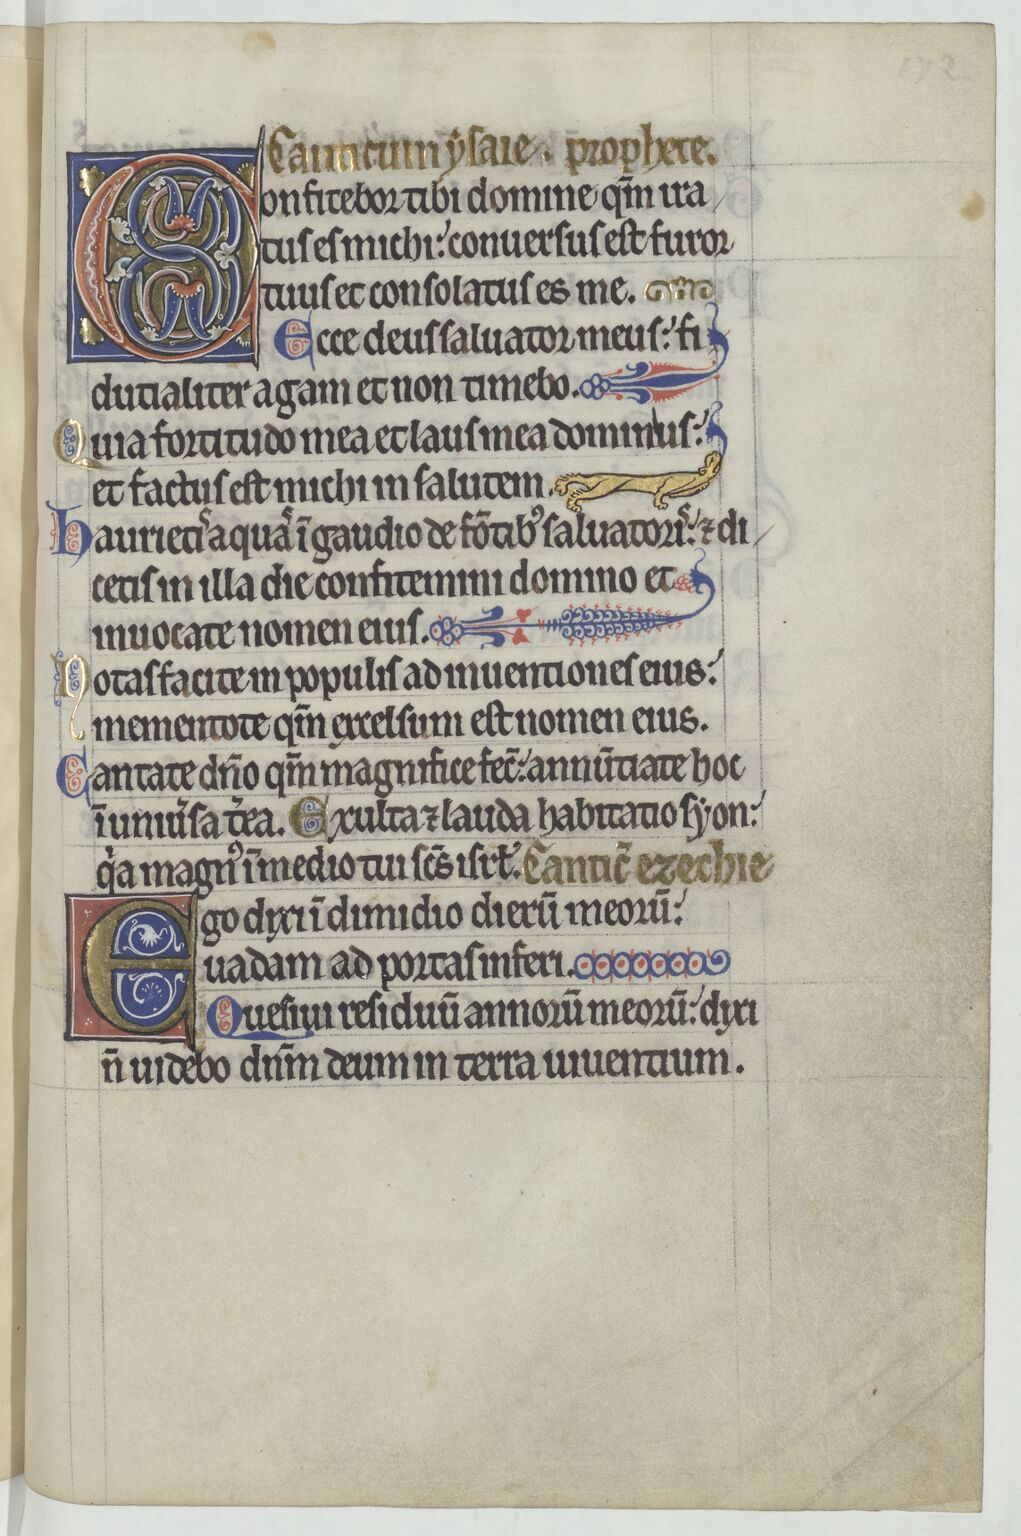 172
Canticum ysaie. prophete.
Confitebor tibi domine qm̄ ira
tus es michi: conuersus est furor
tuus et consolatus es me.
Ecce deus saluator meus: fi
ducialiter agam et non timebo.
Quia fortitudo mea et laus mea dominus:
et factus est michi in salutem.
haurietis aquas ī gaudio de fōtib' saluatoris: ⁊ di
cetis in illa die confitemini domino et
inuocate nomen eius.
Notas facite in populis adinuentiones eius:
mementote qm̄ excelsum est nomen eius.
Cantate dn̄o qm̄ magnifice fec̄: annūtiate hoc
ī uniūsa t̄ra. Exulta ⁊ lauda habitatio syon:
qia magn' ī medio tui sc̄s isrl̄. Cantic̄ ezechie
Ego dixi ī dimidio dierū meorū:
uadam ad portas inferi.
Quesiui residuū annorū meorū: dixi
n̄ uidebo dn̄m deum in terra uiuentium.